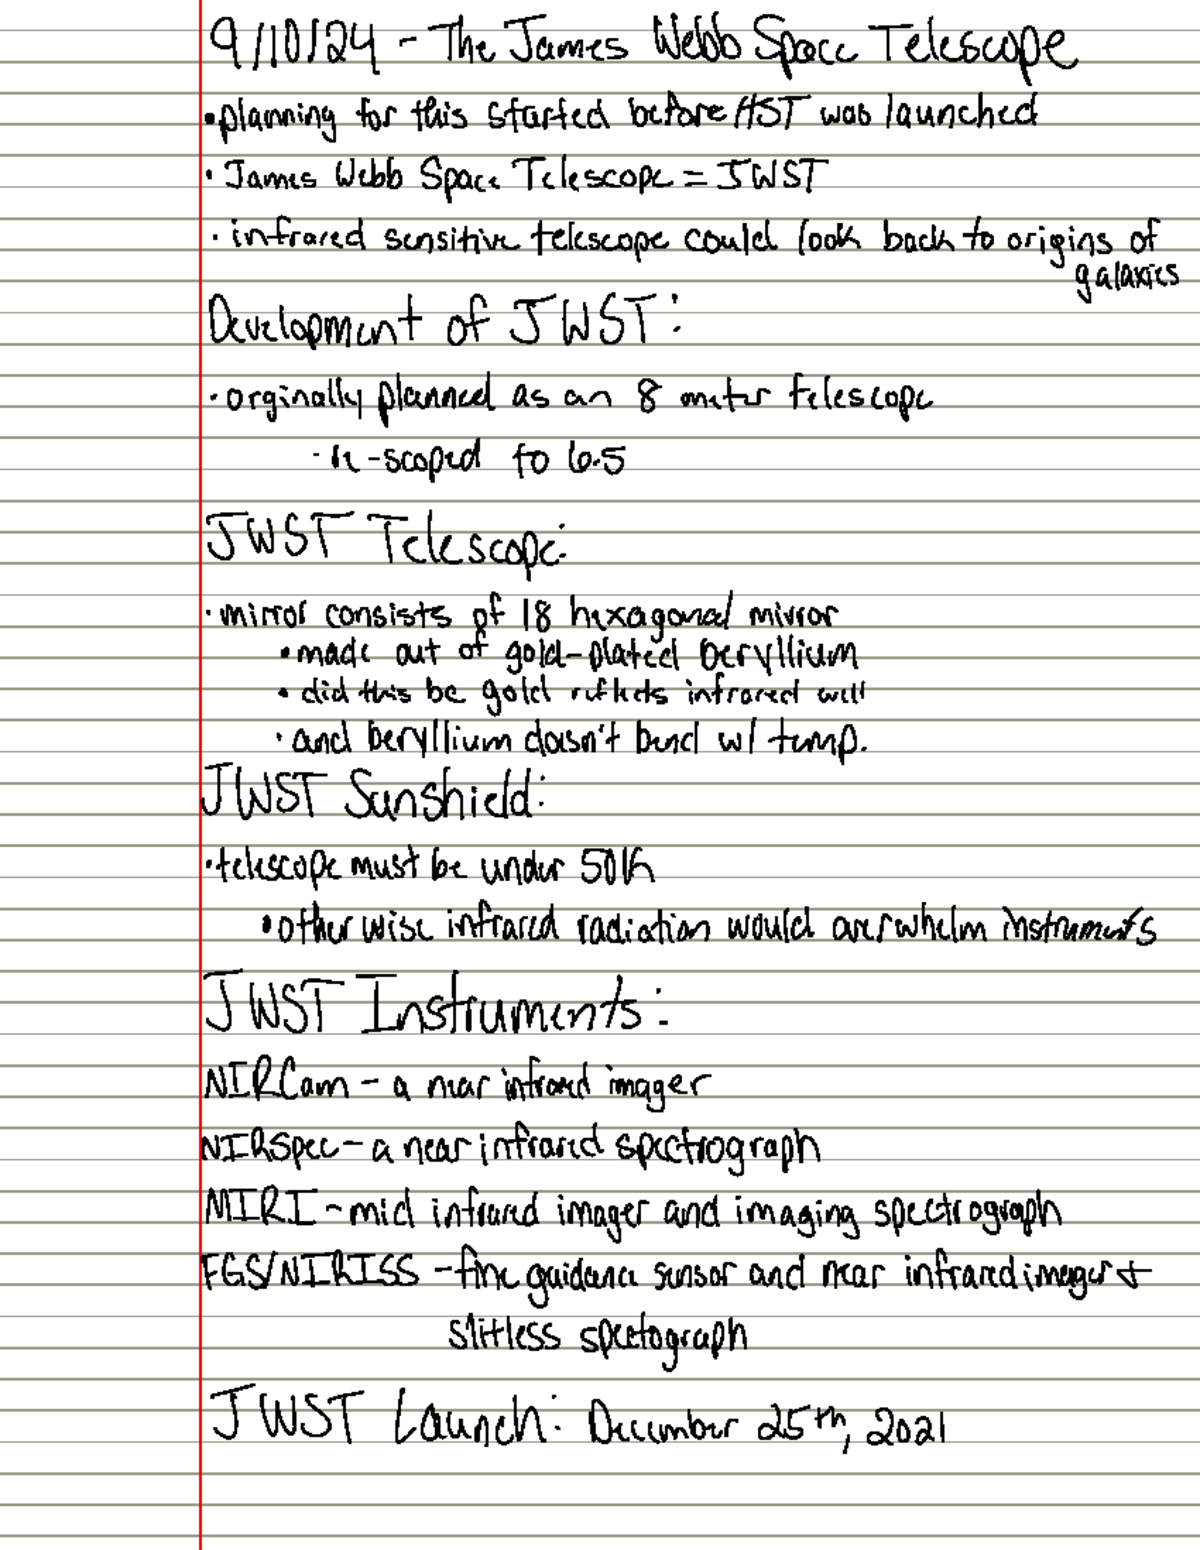 9/10/24 - The James Webb Space Telescope
• planning for this started before HST was launched
• James Webb Space Telescope = JWST
• infrared sensitive telescope could look back to origins of
galaxies
Development of JWST:
• orginally planned as an 8 meter telescope
• re-scoped to 6.5
JWST Telescope:
• mirror consists of 18 hexagonal mirror
• made out of gold-plated beryllium
• did this bc gold reflects infrared well
• and beryllium doesn't bend w/ temp.
JWST Sunshield:
• telescope must be under 50K
• otherwise infrared radiation would overwhelm instruments
JWST Instruments:
NIRCam - a near infrared imager
NIRSpec - a near infrared spectrograph
MIRI - mid infrared imager and imaging spectrograph
FGS/NIRISS - fine guidance sensor and near infrared imager +
slitless spectograph
JWST Launch: December 25th, 2021